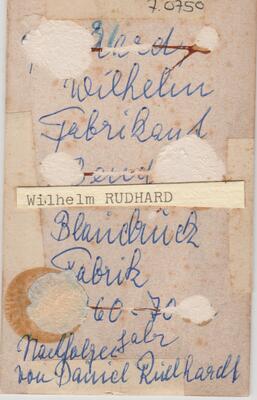 7.0750
Wilhelm
Fabrikant
Wilhelm RUDHARD
Blaudruck
Fabrik
60-70
Jahr
Nachfolger
von Daniel Rudhardt